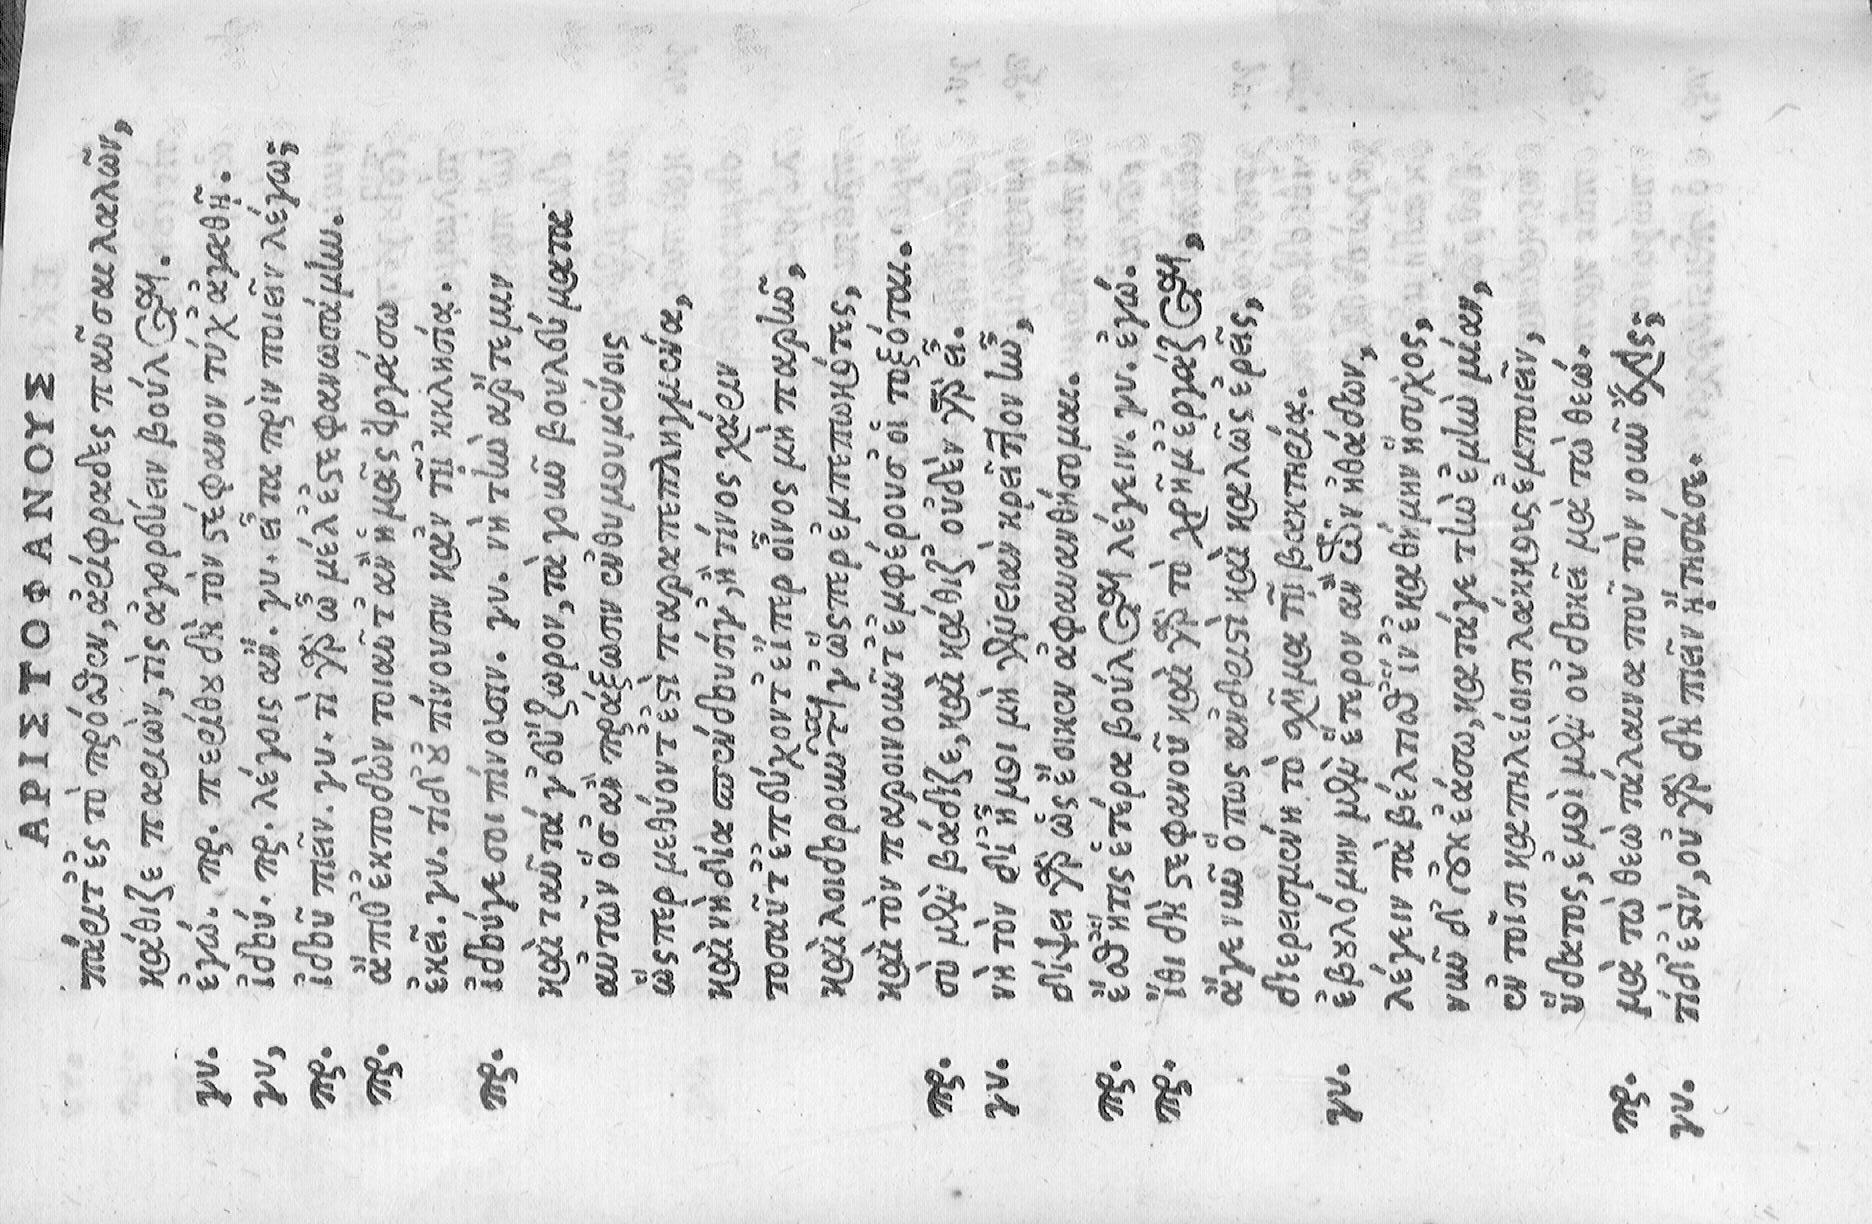 ἈΡΙΣΤΟΦΑΝΟΥΣ
πάριτ᾽ ἐς τὸ πρόσθεν, ἀρίφραδες παῦσαι λαλῶν,
κάθιζε παριὼν, τίς ἀγορεύειν βούλεται.
γυ. ἐγώ. πρ. περίθου δὴ τὸν στέφανον τύχ᾽ ἀγαθῇ.
γυ, ἰδού. πρ. λέγοις ἄν. γυ. εἶτα πρὶν ποιεῖν λέγω;
πρ. ἰδοῦ πιεῖν. γυ. τί γὰρ ὦ μέλ᾽ ἐστεφανωσάμην.
πρ. ἄπιθ᾽ ἐκποδὼν τοιαῦτ᾽ ἂν ἡμᾶς ἠργάσω
ἐκεῖ. γυ. τί δ᾽ οὐ πίνουσιν κἀν τῇ ᾽κκλησίᾳ.
πρ. ἰδού γε σοι πίνοισιν. γυ. νὴ τὴν ἄρτεμιν
καὶ ταῦτά γ᾽ εὔζωρον, τὰ γοῦν βουλεύματα
αὐτῶν ὅσ᾽ ἂν πράξωσιν ἐνθυμουμένοις
ὥσπερ μεθύοντ᾽ ἐστὶ παραπεπληγμένα,
καὶ νὴ δία σπένδουσίν γ᾽, ἢ τίνος χάριν
τοσαῦτ᾽ ἐπεύχοντ᾽ εἴπερ οἶνος μὴ παρῆν,
καὶ λοιδοροῦνταί γ᾽ ὥσπερ ἐμπεπωκότες,
καὶ τὸν παροινοῦντ᾽ ἐμφέρουσ᾽ οἱ τοξόται.
πρ. σὺ μὲν βάδιζε, καὶ κάθιζ᾽ οὐδὲν γὰρ εἶ.
γυ. νὴ τὸν δί᾽ ἦ μοι μὴ γενειᾶν κρεῖττον ἦν,
δίψει γὰρ ὡς ἔοικεν ἀφαυανθήσομαι.
πρ. ἔσθ᾽ ἥτις ἑτέρα βούλεται λέγειν. γυ. ἐγώ.
πρ. ἴθι δὴ στεφανοῦ καὶ γὰρ τὸ χρῆμ᾽ ἐργάζεται,
ἄγε νῦν ὅπως ἀνδριστὶ καὶ καλῶς ἐρεῖς,
διερεισμένη τὸ σχῆμα τῇ βακτηρίᾳ.
γυ. ἐβουλόμην μὲν ἕτερον ἂν τῶν ἠθάδων,
λέγειν τὰ βέλτισθ᾽ ἵν᾽ ἐκαθήμην ἥσυχος,
νῦν δ᾽ οὐκ ἐάσω, κατάγε τὴν ἐμὴν μίαν,
ἐν τοῖσι καπηλείοισι λάκκους ἐμποιεῖν,
ὕδατος, ἐμοὶ μὲν οὐ δοκεῖ μὰ τὼ θεώ.
πρ. μὰ τὼ θεὼ τάλαινα ποῦ τὸν νοῦν ἔχεις;
γυ. τί δ᾽ ἔστιν, οὐ γὰρ δὴ πιεῖν ᾔτησά σε.